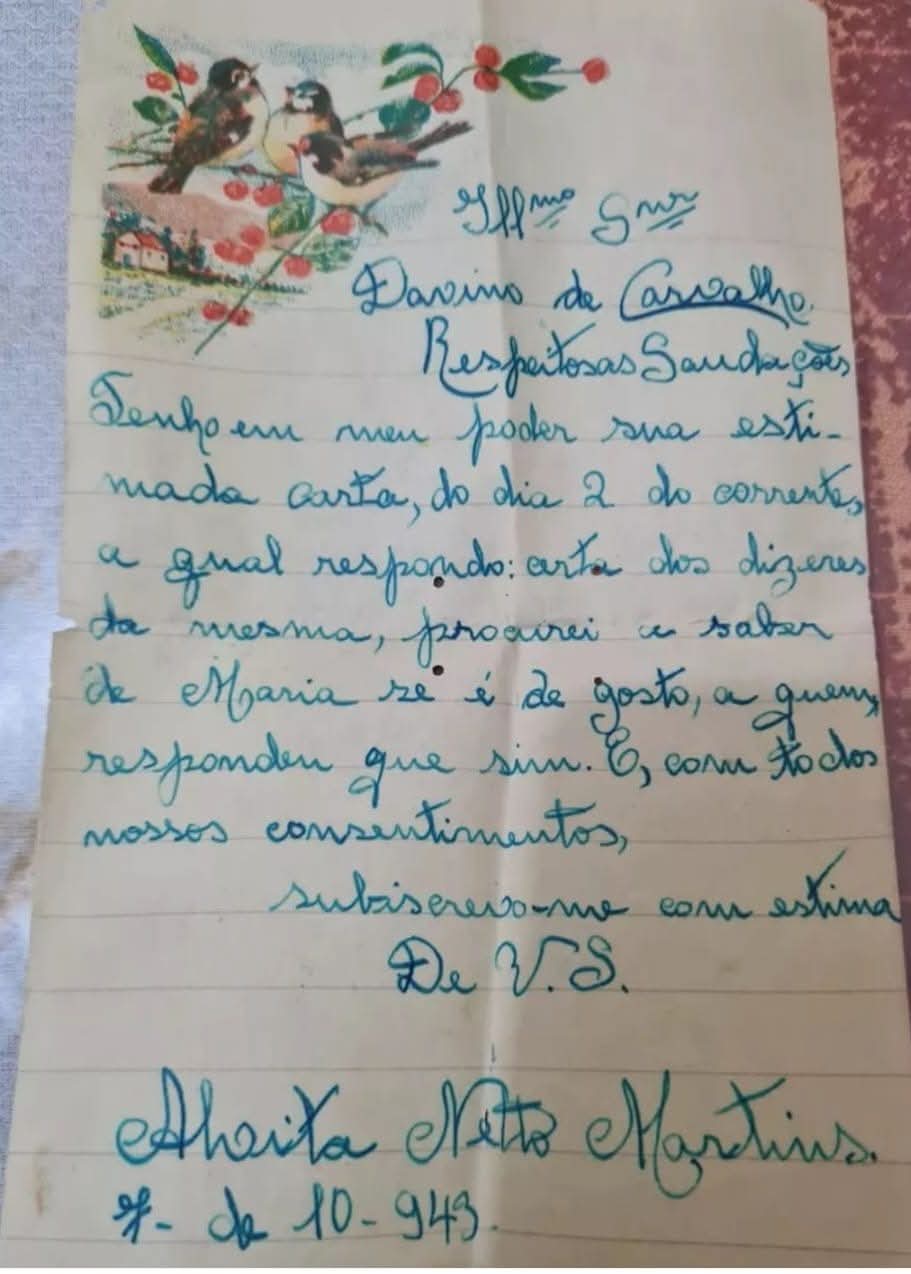 Illmo Snr
Davino de Carvalho.
Respeitosas Saudações
Tenho em meu poder sua esti-
mada carta, do dia 2 do corrente,
a qual respondo: certa dos dizeres
da mesma, procurei a saber
de Maria se é de gosto, a quem,
respondeu que sim. E, com todos
nossos consentimentos,
subiscrevo-me com estima
De V. S.
Netto Martins.
7- de 10-943.